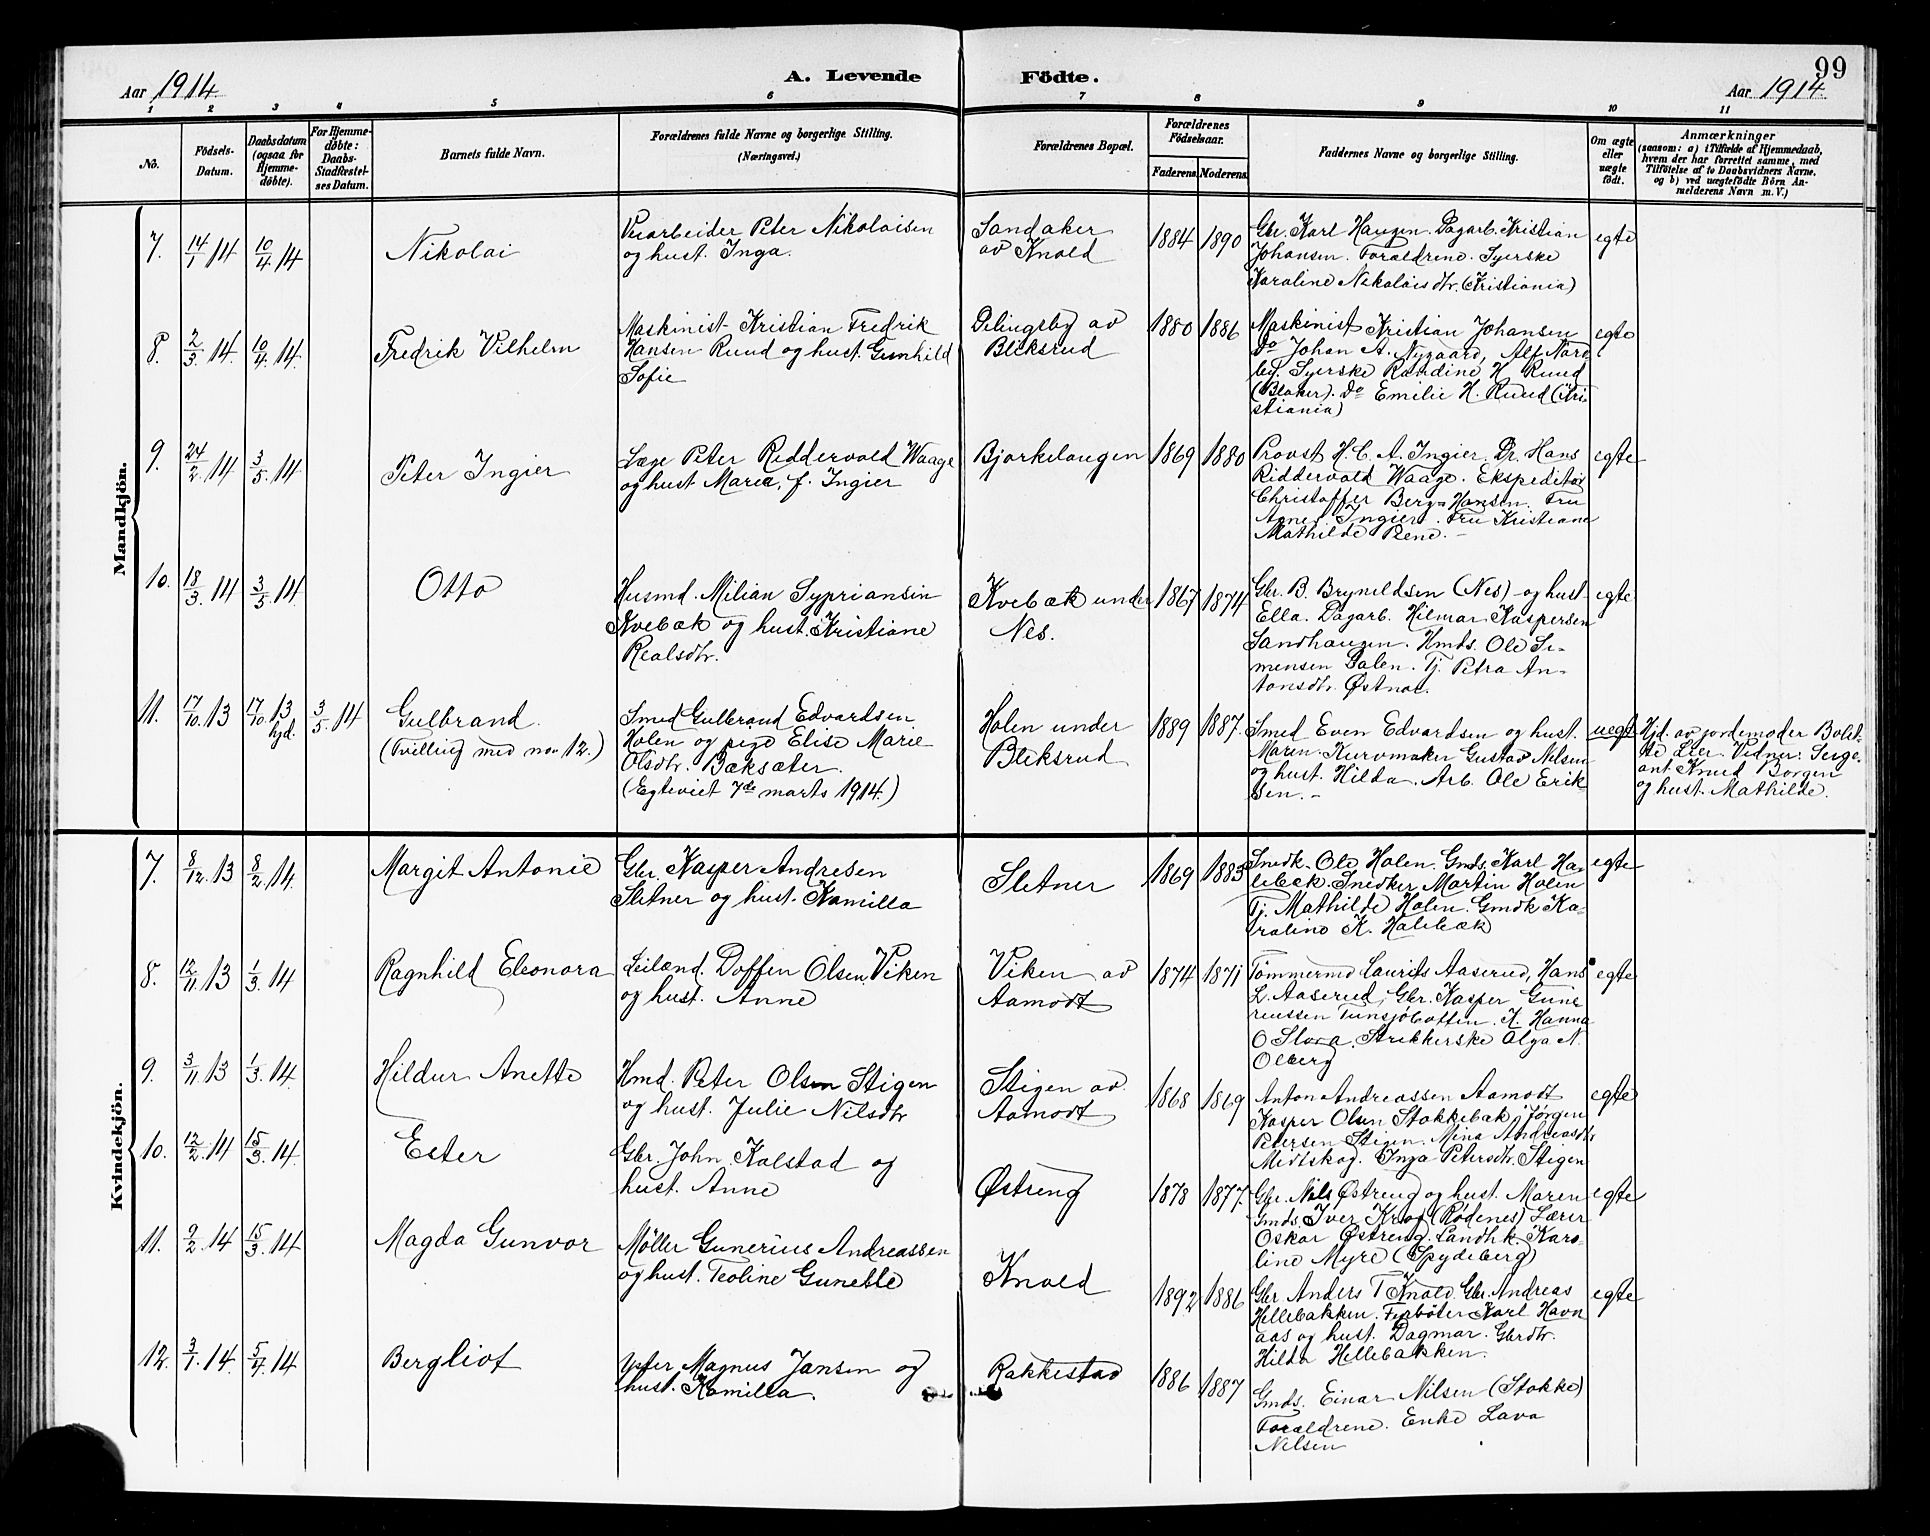 99
Aar 1914.
A. Levende Födte.
Aar 1914.
1 2 3 4 5 6 7 8 9 10 11
No.
Födsels-
Datum.
Daabsdatum
(ogsaa for
Hjemme-
döbte).
For Hjemme-
döbte:
Daabs-
Stadfæstel-
ses Datum.
Barnets fulde Navn.
Forældrenes fulde Navne og borgerlige Stilling.
(Næringsvei.)
Forældrenes Bopæl.
Forældrenes
Födselsaar.
Faderens. Moderens.
Faddernes Navne og borgerlige Stilling.
Om ægte
eller
uægte
födt.
Anmærkninger
(saasom: a) i Tilfælde af Hjemmedaab,
hvem der har forrettet samme, med
Tilföielse af to Daabsvidners Navne,
og b) ved uægtefödte Börn An-
melderens Navn m. V.)
Mandkjön.
7. 14/1 14 10/4 14
Nikolai
Veiarbeider Peter Nikolaisen
og hust. Inga.
Sandaker
av Knold
1884 1890
Gbr. Karl Haugen. Dagarb. Kristian
Johansen. Forældrene. Syerske
Karoline Nikolaisdtr. (Kristiania)
egte
8. 2/3 14. 10/4 14.
Fredrik Vilhelm
Maskinist Kristian Fredrik
Hansen Ruud og hust. Gunhild
Sofie
Delingsby av
Bliksrud
1880 1886
Maskinist Kristian Johansen
do Johan A. Nygaard, Alf Nord
by. Syerske Randine H. Ruud
(Blaker). do Emilie H. Ruud (Kri-
stiania)
egte
9. 24/2 14 3/5 14
Peter Ingier
Læge Peter Riddervold Waage
og hust Marie, f. Ingier
Bjørkelangen
1869 1880
Provst H. C. A. Ingier. Dr. Hans
Riddervold Waage. Ekspeditør
Christoffer Berg-Hansen. Fru
Agnes Ingier. Fru Kristiane
Mathilde Rene. -
egte
10. 18/3 14 3/5 14.
Otto
Husmd. Milian Sypriansin
Kvebæk og hust. Kristiane
Realsdtr.
Kvebæk under
Nes.
1867 1874
Gbr. B. Brynildsen (Nes) og hust
Ella. Dagarb. Hilmar Kaspersen
Sandhaugen. Hmds. Ole Si-
mensen Dalen. Tj. Petra An-
tonsdtr. Østnæs.
egte
11. 17/10 13 17/10 13 hjd. 3/5 14
Gulbrand.
(Tvilling med no. 12.)
Smed Gulbrand Edvardsen
Holen og pige Elise Marie
Olsdtr. Bæksæter.
(Egteviet 7de marts 1914.)
Holen under
Bliksrud
1889 1887.
Smed Even Edvardsen og hust.
Maren. Kurvmaker Gustav Nilsen
og hust. Hilda. Arb. Ole Erik-
sen. -
uegte
Hjd. av jordemoder Bolet-
te Lier. Vidner: Serge-
ant Knud Borgen
og hust. Mathilde.
Kvindekjön.
7. 8/12. 13 8/2 14.
Margit Antonie
Gbr. Kasper Andresen
Sletner og hust. Kamilla
Sletner
1869 1883
Snedk. Ole Holen. Gmds Karl Ha-
lebæk. Snedker Martin Holen
Tj. Mathilde Holen. Gmdk Ka-
roline K. Halebæk
egte
8. 12/11 13 1/3 14
Ragnhild Eleonora
Leilænd. Doffin Olsen Viken
og hust. Anne
Viken av
Aamodt
1874 1871
Tømmermd Laurits Aaserud, Hans
L. Aaserud, Gbr. Kasper Gune
riussen Tunsjøbotten. K. Hanna
O Slora. Strikkerske Olga N.
Olberg
egte
9. 3/11 13 1/3. 14.
Hildur Anette
Hmd. Peter Olsen Stigen
og hust. Julie Nilsdtr
Stigen av
Aamodt
1868 1869
Anton Andreassen Aamodt
Kasper Olsen Stokkebæk, Jørgen
Petersen Stigen. Mina Andreasdtr
Midtskog. Inga Petersdtr. Stigen
egte
10. 12/2. 14 15/3. 14.
Ester
Gbr. John Kalstad og
hust. Anne
Østreng
1878 1877.
Gbr. Nils Østreng og hust. Maren
Gmds. Iver Krog (Rødenes) Lærer
Oskar Østreng. Landhk. Karo-
line Myre (Spydeberg)
egte
11. 9/2. 14 15/3. 14
Magda Gunvor
Møller Gunerius Andreassen
og hust. Teoline Gunette
Knold
1892 1886
Gbr Anders T Knold. Gbr. Andreas
Hellebakken. Karl Havn
aas og hust. Dagmar. Gbrdtr.
Hilda Hellebakken.
egte
12. 3/1. 14. 5/4 14
Bergliot
Magnus Jansen og
hust. Kamilla.
Rakkestad
1886 1887
Gmds. Einar Nilsen (Stokke)
Forældrene. Enke Lava
Nilsen